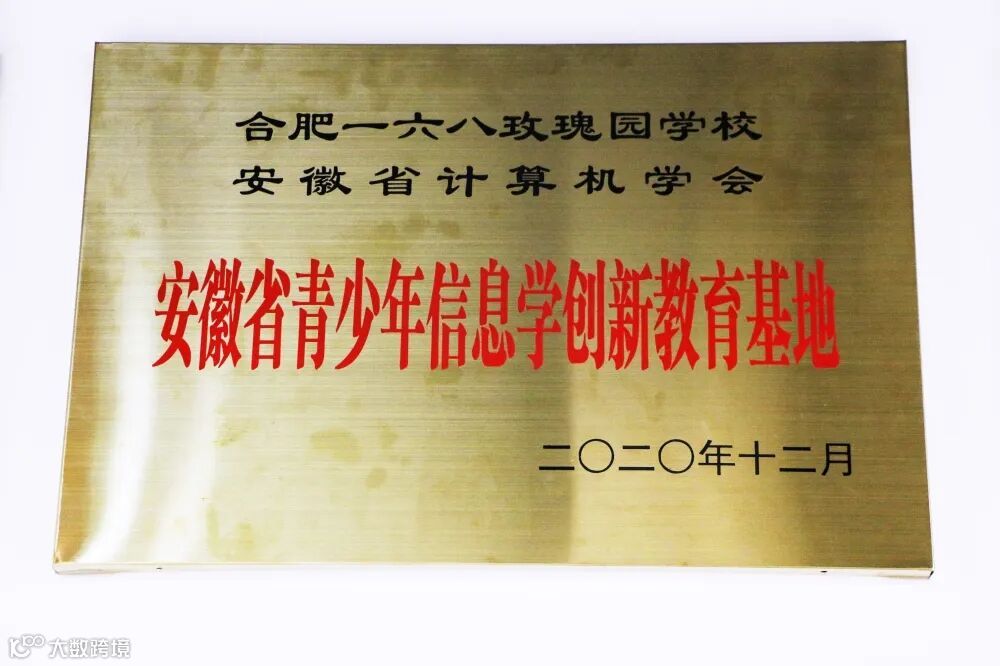 合肥一六八玫瑰园学校
安徽省计算机学会
安徽省青少年信息学创新教育基地
二〇二〇年十二月
大数跨境